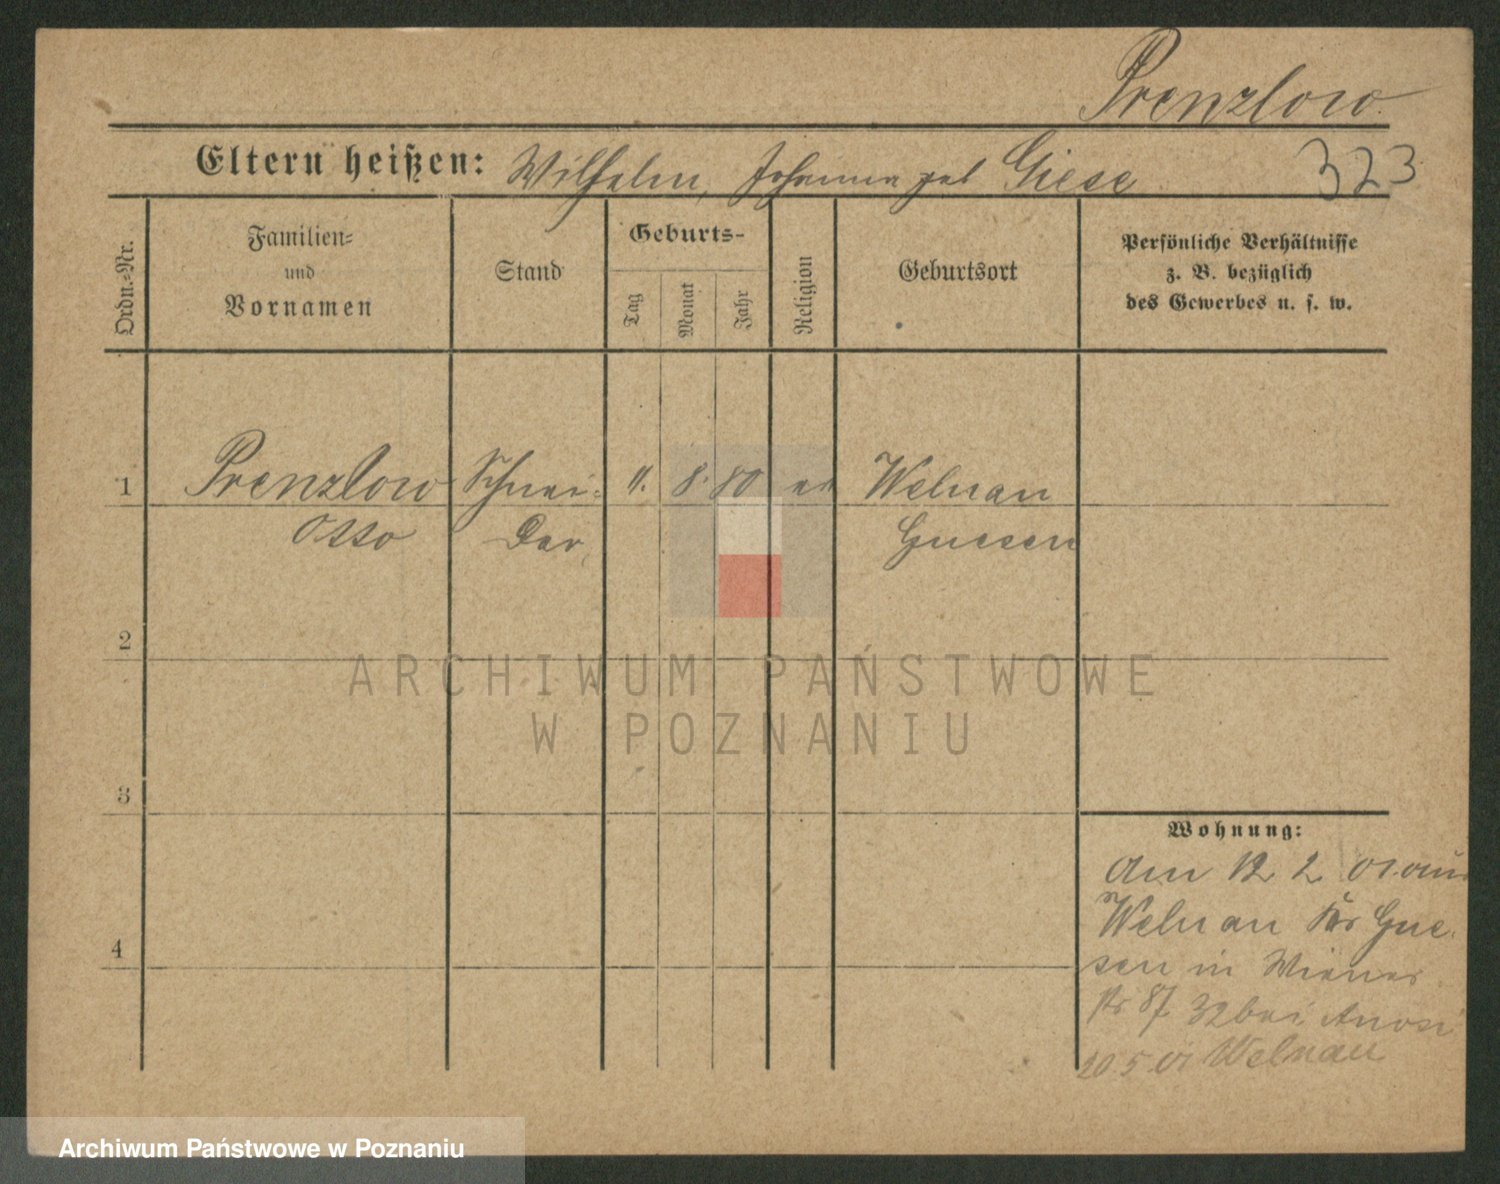 Prenzlow.
Eltern heißen: Wilhelm, Johanna geb Giese 323
Ordn.-Nr.
Familien-
und
Vornamen
Stand
Geburts-
Tag
Monat
Jahr
Religion
Geburtsort
Persönliche Verhältnisse
z. B. bezüglich
des Gewerbes u. s. w.
1 Prenzlow Schnei- 11. 8. 80 ev Welnau
Otto der Gnesen
2
ARCHIWUM PAŃSTWOWE
W POZNANIU
3
Wohnung:
Am 12 2 01 aus
Welnau Krs Gne-
4
sen in Wiener
str 87 32 bei
20 5 01 Welnau
Archiwum Państwowe w Poznaniu